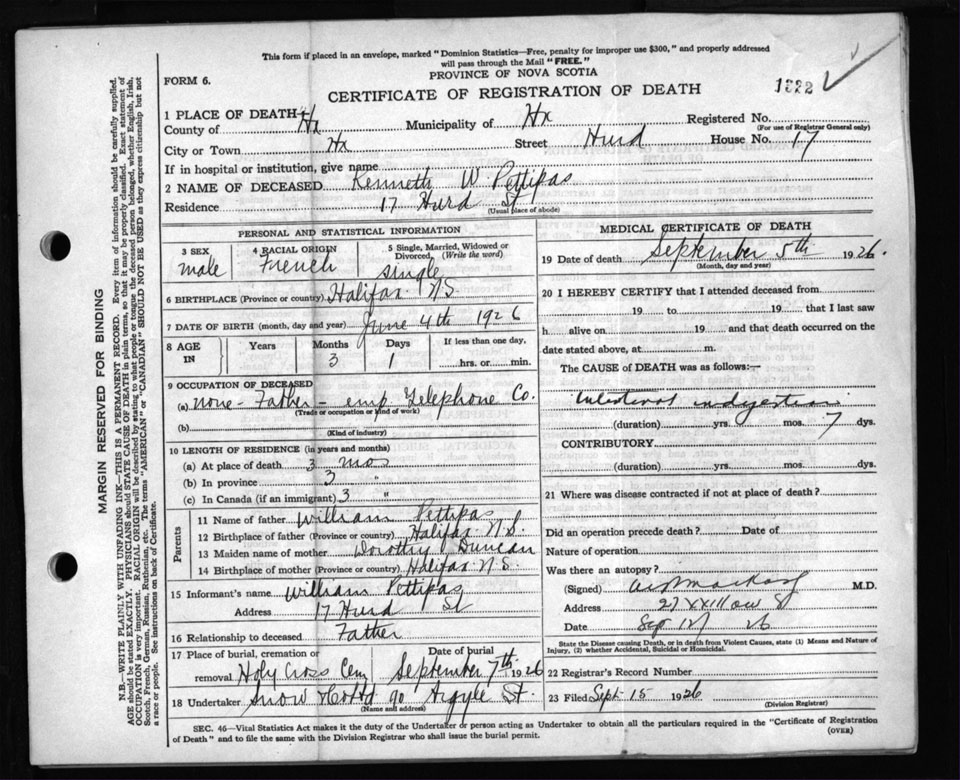 This form if placed in an envelope, marked "Dominion Statistics—Free, penalty for improper use $300," and properly addressed
will pass through the Mail "FREE."
PROVINCE OF NOVA SCOTIA
FORM 6.
1322
CERTIFICATE OF REGISTRATION OF DEATH
1 PLACE OF DEATH
County of Hx Municipality of Hx Registered No.
(For use of Registrar General only)
City or Town Hx Street Hurd House No. 17
If in hospital or institution, give name
2 NAME OF DECEASED Kenneth W Pettipas
Residence 17 Hurd St
(Usual place of abode)
PERSONAL AND STATISTICAL INFORMATION
3 SEX male
4 RACIAL ORIGIN French
5 Single, Married, Widowed or Divorced, (Write the word) single
6 BIRTHPLACE (Province or country) Halifax N S
7 DATE OF BIRTH (month, day and year) June 4th 1926
8 AGE IN Years Months 3 Days 1 If less than one day, hrs. or min.
9 OCCUPATION OF DECEASED
(a) none - Father - emp Telephone Co.
(Trade or occupation or kind of work)
(b)
(Kind of industry)
10 LENGTH OF RESIDENCE (in years and months)
(a) At place of death 3 mos
(b) In province 3 "
(c) In Canada (if an immigrant) 3 "
Parents
11 Name of father William Pettipas
12 Birthplace of father (Province or country) Halifax N.S.
13 Maiden name of mother Dorothy Duncan
14 Birthplace of mother (Province or country) Halifax N.S.
15 Informant's name William Pettipas
Address 17 Hurd St
16 Relationship to deceased Father
17 Place of burial, cremation or removal Holy Cross Cem Date of burial September 7th 1926
18 Undertaker Snow & Co Ltd 90 Argyle St.
(Name and address)
MEDICAL CERTIFICATE OF DEATH
19 Date of death September 5th 1926.
(Month, day and year)
20 I HEREBY CERTIFY that I attended deceased from
19 to 19 that I last saw
h alive on 19 and that death occurred on the
date stated above, at m.
The CAUSE of DEATH was as follows:—
indigestion
(duration) yrs. mos. 7 dys.
CONTRIBUTORY
(duration) yrs. mos. dys.
21 Where was disease contracted if not at place of death?
Did an operation precede death? Date of
Nature of operation
Was there an autopsy?
(Signed) M.D.
Address 27 Willow St
Date Sep 26
State the Disease causing Death, or in death from Violent Causes, state (1) Means and Nature of
Injury, (2) whether Accidental, Suicidal or Homicidal.
22 Registrar's Record Number
23 Filed Sept 15 1926
(Division Registrar)
SEC. 46—Vital Statistics Act makes it the duty of the Undertaker or person acting as Undertaker to obtain all the particulars required in the "Certificate of Registration
of Death" and to file the same with the Division Registrar who shall issue the burial permit.
(OVER)
MARGIN RESERVED FOR BINDING
N.B.—WRITE PLAINLY WITH UNFADING INK—THIS IS A PERMANENT RECORD. Every item of information should be carefully supplied.
AGE should be stated EXACTLY. PHYSICIANS should STATE CAUSE OF DEATH in plain terms, so that it may be properly classified. Exact statement of
OCCUPATION is very important. RACIAL ORIGIN will be described by stating to what people or tongue the deceased person belonged, whether English, Irish,
Scotch, French, German, Russian, Ruthenian, etc. The terms "AMERICAN" or "CANADIAN" SHOULD NOT BE USED as they express citizenship but not
a race or people. See instructions on back of Certificate.